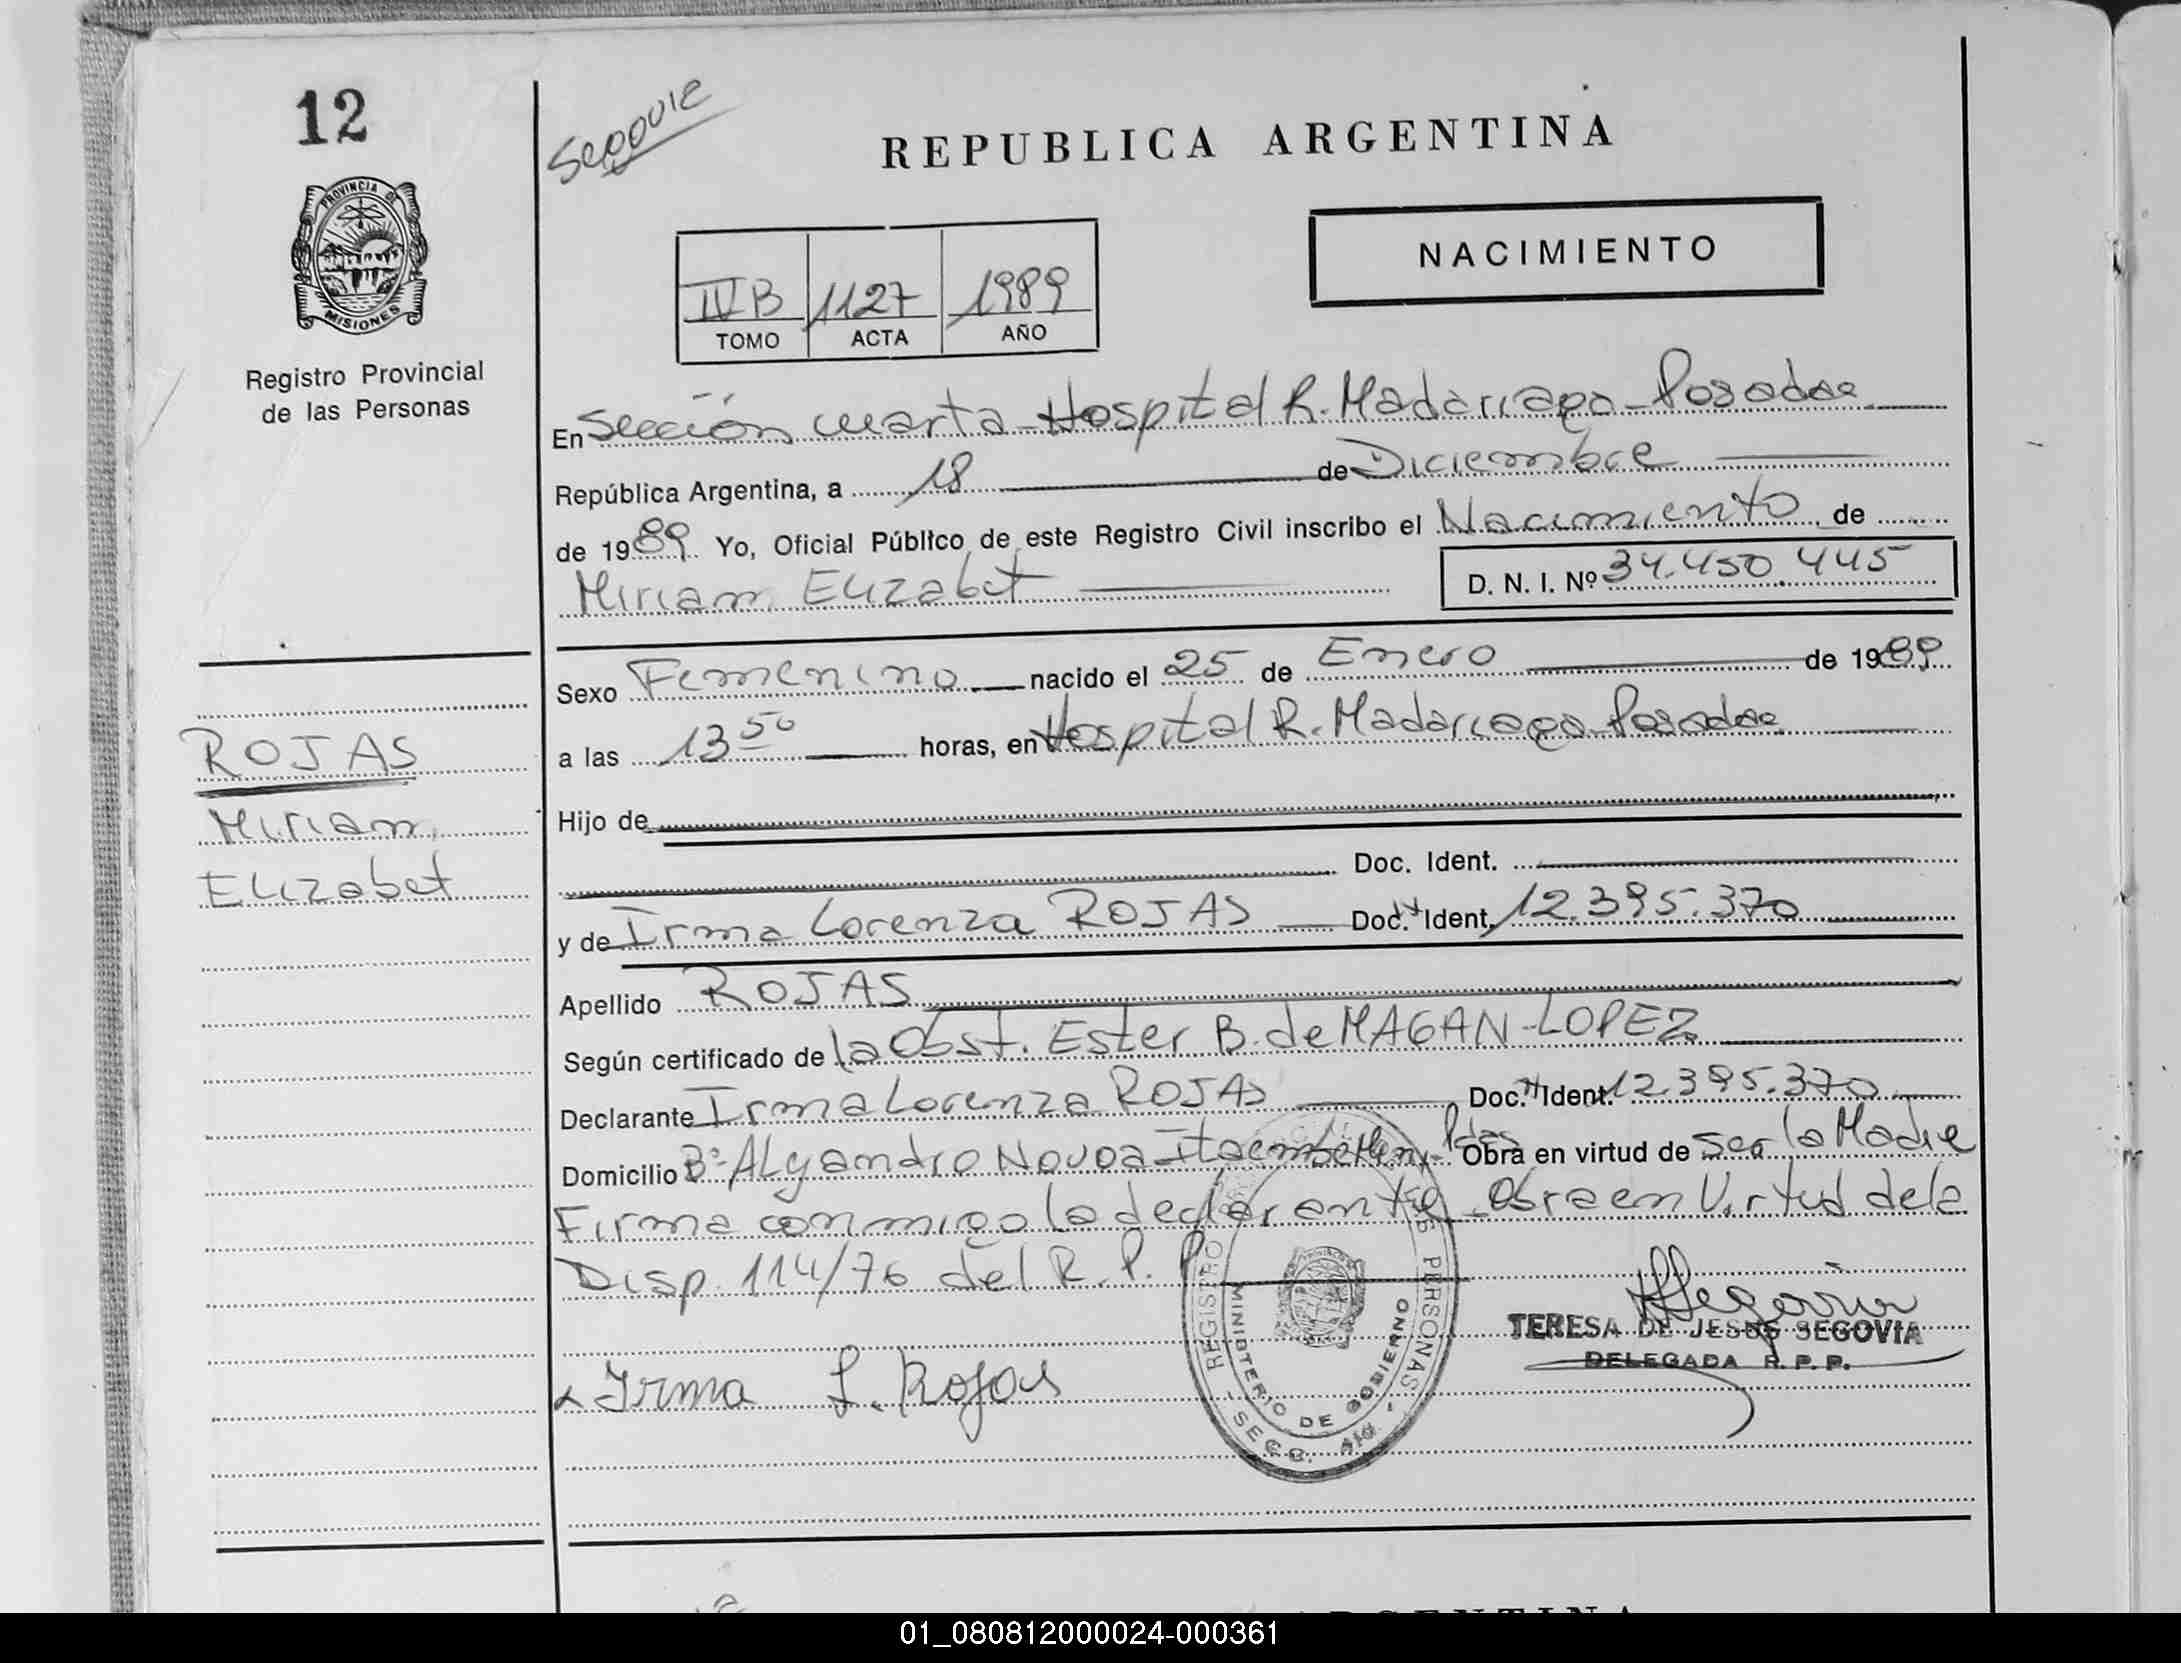 12
Segovia
REPUBLICA ARGENTINA
PROVINCIA DE
MISIONES
NACIMIENTO
IV B 1127 1989
TOMO ACTA AÑO
Registro Provincial
de las Personas
En Sección cuarta - Hospital R. Madariaga - Posadas
República Argentina, a 18 de Diciembre
de 1989 Yo, Oficial Público de este Registro Civil inscribo el Nacimiento de
Miriam Elizabet D. N. I. Nº 34.450.445
Sexo Femenino nacido el 25 de Enero de 1989
a las 13 50 horas, en Hospital R. Madariaga - Posadas
ROJAS
Miriam
Elizabet
Hijo de
Doc. Ident.
y de Irma Lorenza ROJAS Doc. Ident. 12.395.370
Apellido ROJAS
Según certificado de la Obst. Ester B. de MAGAN-LOPEZ
Declarante Irma Lorenza ROJAS Doc. Ident. 12.395.370
Domicilio Bº Alejandro Novoa Pdas Obra en virtud de ser la Madre
Firma conmigo la declarante - Obra en Virtud de la
Disp. 114/76 del R. P. P.
TERESA DE JESUS SEGOVIA
DELEGADA R. P. P.
Irma L. Rojas
REGISTRO PERSONAS
MINISTERIO DE GOBIERNO
SECC. 4ta
ARGENTINA
01_080812000024-000361